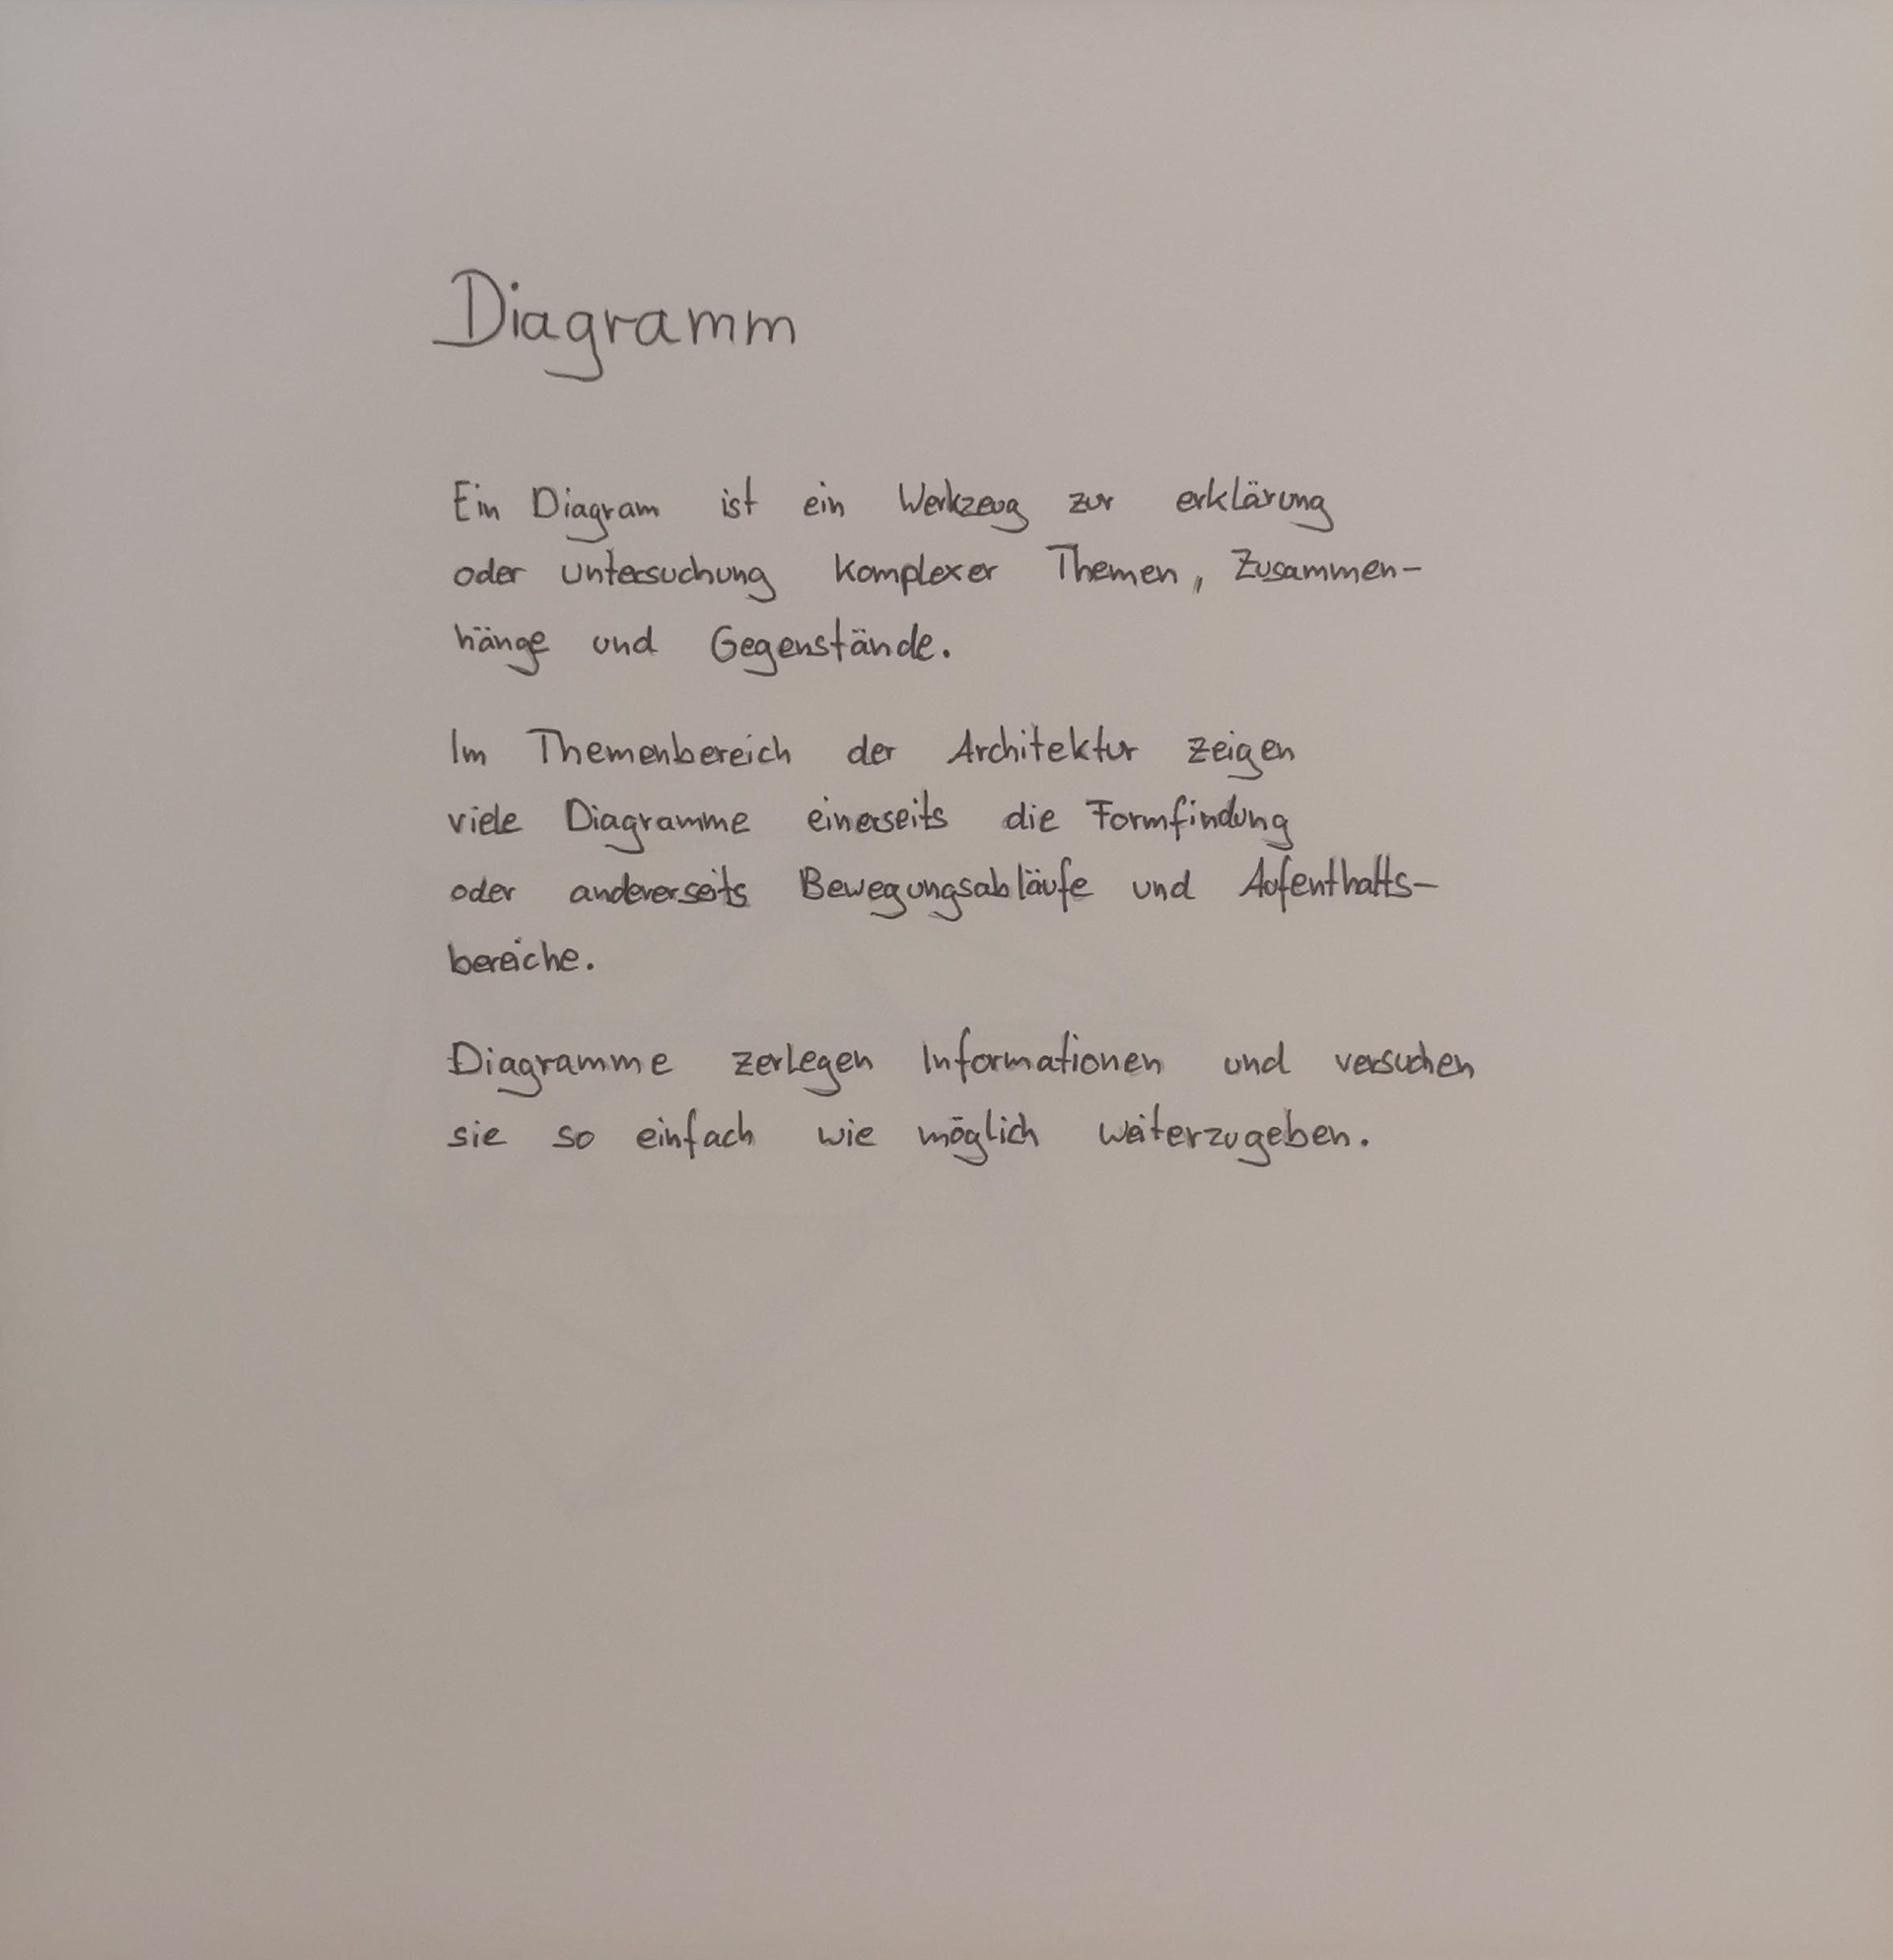 Diagramm
Ein Diagram ist ein Werkzeug zur erklärung
oder untersuchung komplexer Themen, Zusammen-
hänge und Gegenstände.
Im Themenbereich der Architektur zeigen
viele Diagramme einerseits die Formfindung
oder andererseits Bewegungsabläufe und Aufenthalts-
bereiche.
Diagramme zerlegen Informationen und versuchen
sie so einfach wie möglich weiterzugeben.